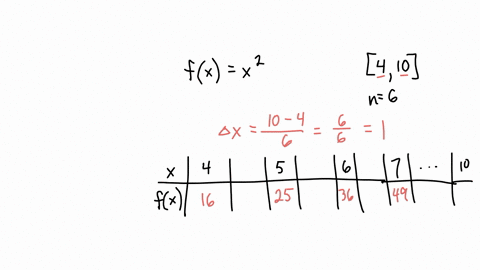 f(x) = x² [4, 10]
n=6
Δx = 10-4/6 = 6/6 = 1
x 4 5 6 7 ... 10
f(x) 16 25 36 49